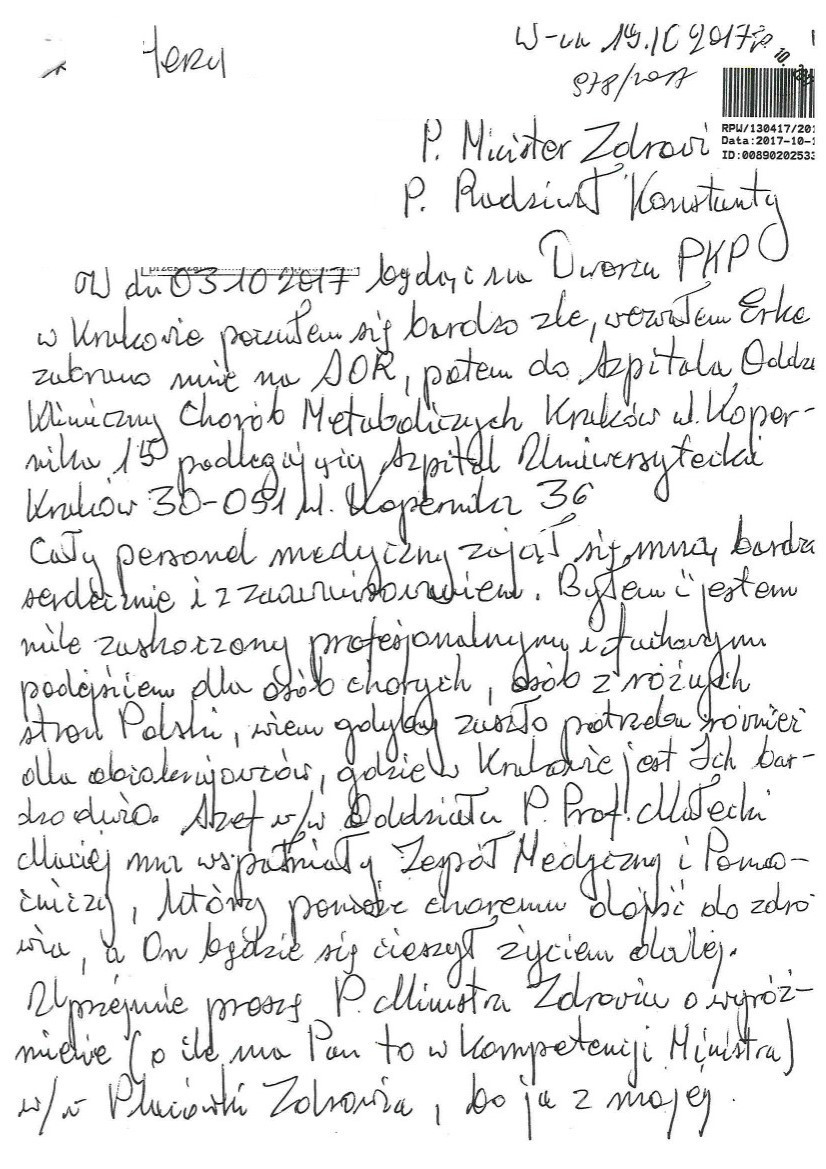 Jerzy
W-wa 19.10 2017
978/2017
RPW/130417/201
Data:2017-10-1
ID:0089020253
P. Minister Zdrowi
P. Radziwił Konstanty
W dn 03 10 2017 będąc na Dworcu PKP
w Krakowie poczułem się bardzo źle, wezwałem Erkę
zabrano mnie na SOR, potem do Szpitala Oddzia
Kliniczny Chorób Metabolicznych Kraków ul. Koper-
nika 15 podlegający Szpital Uniwersytecki
Kraków 30-091 ul. Kopernika 36
Cały personel medyczny zajął się mną bardzo
serdecznie i z zaawansowaniem. Byłem i jestem
mile zaskoczony profesjonalnym i fachowym
podejściem dla osób chorych, osób z różnych
stron Polski, wiem gdyby zaszło potrzeba również
dla obcokrajowców, gdzie w Krakowie jest Ich bar-
dzo dużo. Szef w/w Oddziału P. Prof. Małecki
Maciej ma wspaniały Zespół Medyczny i Pomo-
cniczy, który pomoże choremu dojść do zdro
wia, a On będzie się cieszył życiem dalej.
Uprzejmie proszę P. Ministra Zdrowia o wyróż-
nienie (o ile ma Pan to w kompetencji Ministra)
w/w Placówki Zdrowia, bo ja z mojej